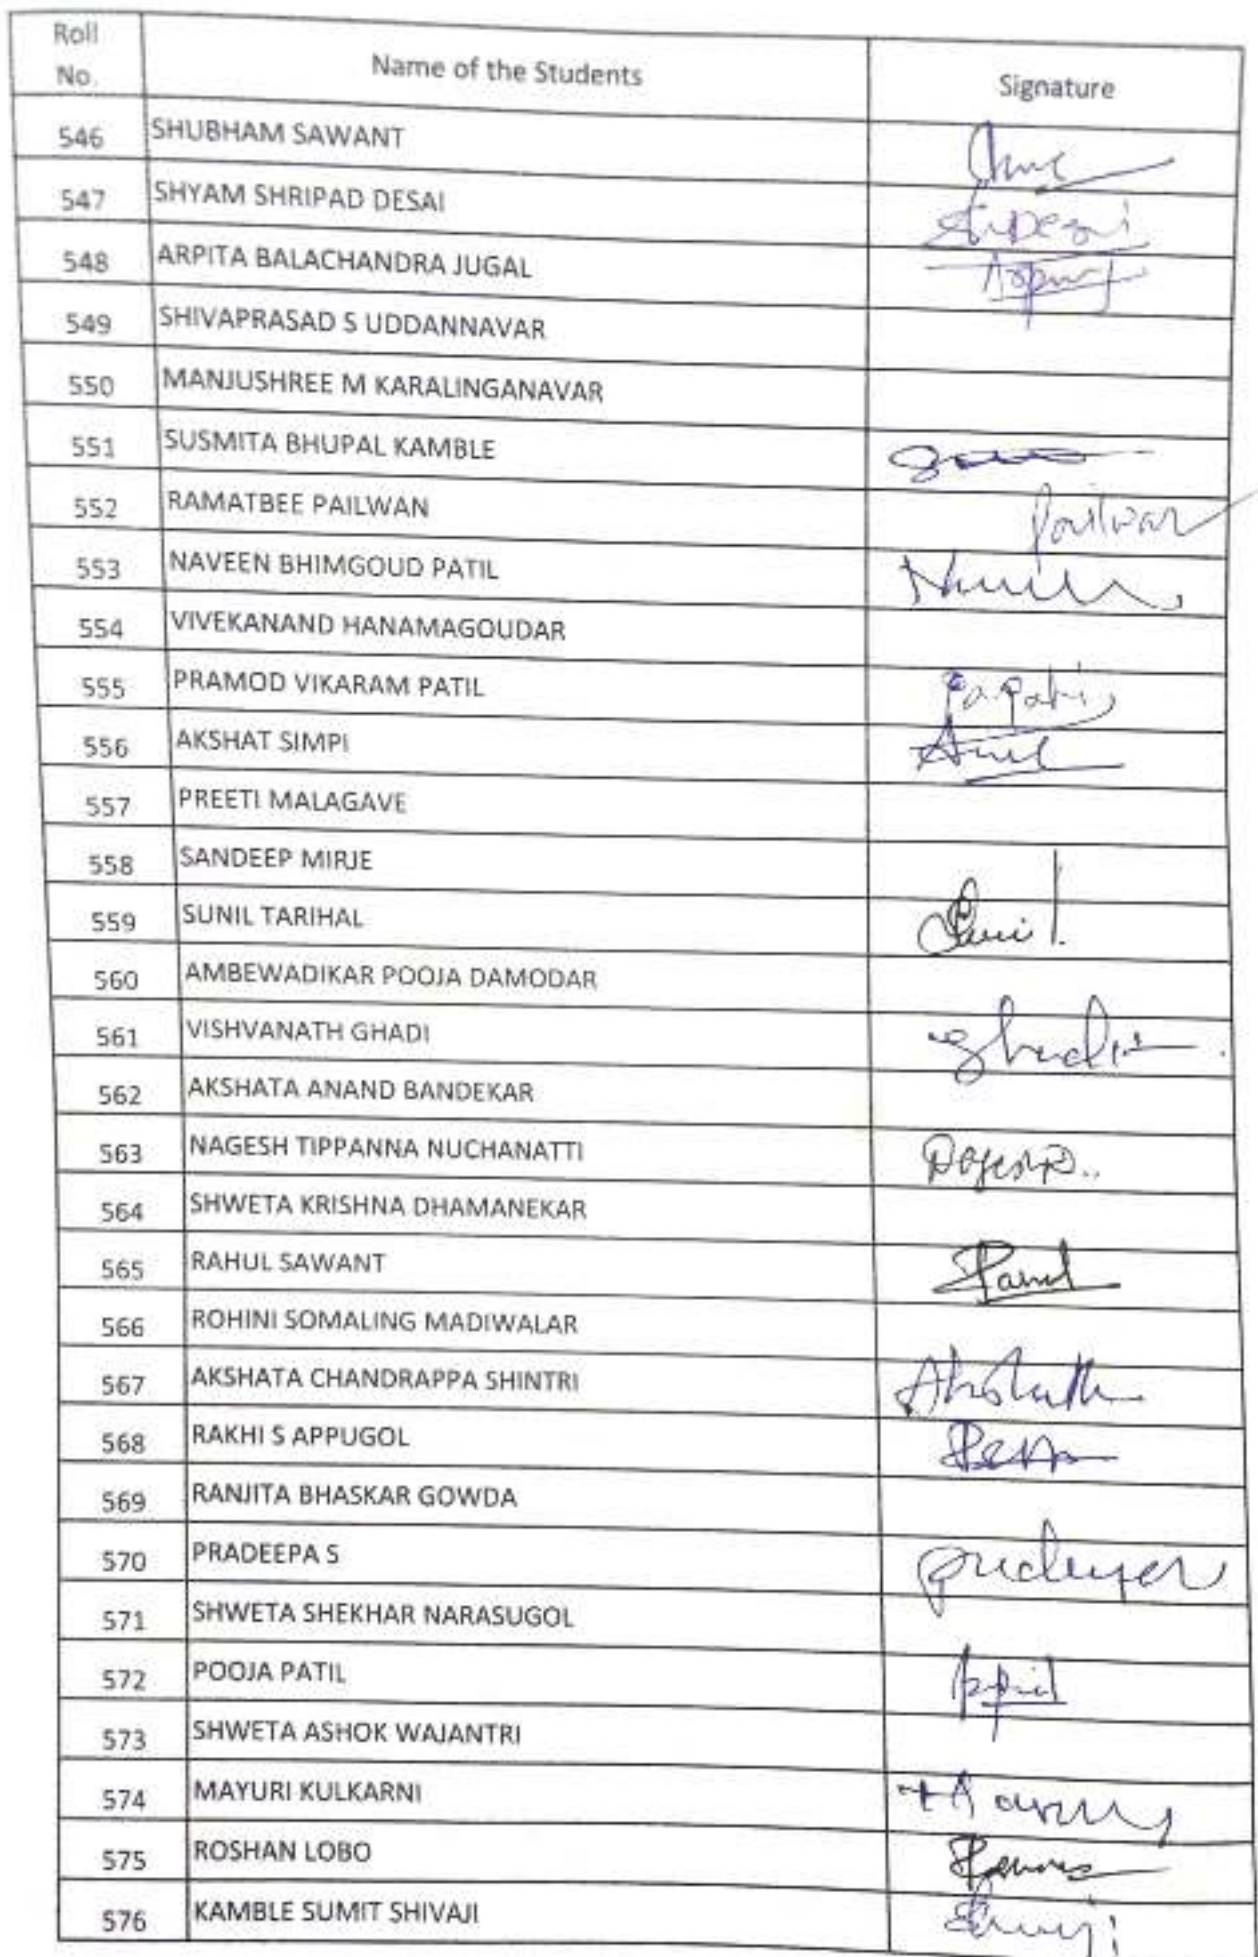 Roll No. Name of the Students Signature
546 SHUBHAM SAWANT
547 SHYAM SHRIPAD DESAI
548 ARPITA BALACHANDRA JUGAL
549 SHIVAPRASAD S UDDANNAVAR
550 MANJUSHREE M KARALINGANAVAR
551 SUSMITA BHUPAL KAMBLE
552 RAMATBEE PAILWAN Pailwan
553 NAVEEN BHIMGOUD PATIL
554 VIVEKANAND HANAMAGOUDAR
555 PRAMOD VIKARAM PATIL
556 AKSHAT SIMPI
557 PREETI MALAGAVE
558 SANDEEP MIRJE
559 SUNIL TARIHAL
560 AMBEWADIKAR POOJA DAMODAR
561 VISHVANATH GHADI
562 AKSHATA ANAND BANDEKAR
563 NAGESH TIPPANNA NUCHANATTI
564 SHWETA KRISHNA DHAMANEKAR
565 RAHUL SAWANT
566 ROHINI SOMALING MADIWALAR
567 AKSHATA CHANDRAPPA SHINTRI
568 RAKHI S APPUGOL
569 RANJITA BHASKAR GOWDA
570 PRADEEPA S
571 SHWETA SHEKHAR NARASUGOL
572 POOJA PATIL
573 SHWETA ASHOK WAJANTRI
574 MAYURI KULKARNI
575 ROSHAN LOBO
576 KAMBLE SUMIT SHIVAJI